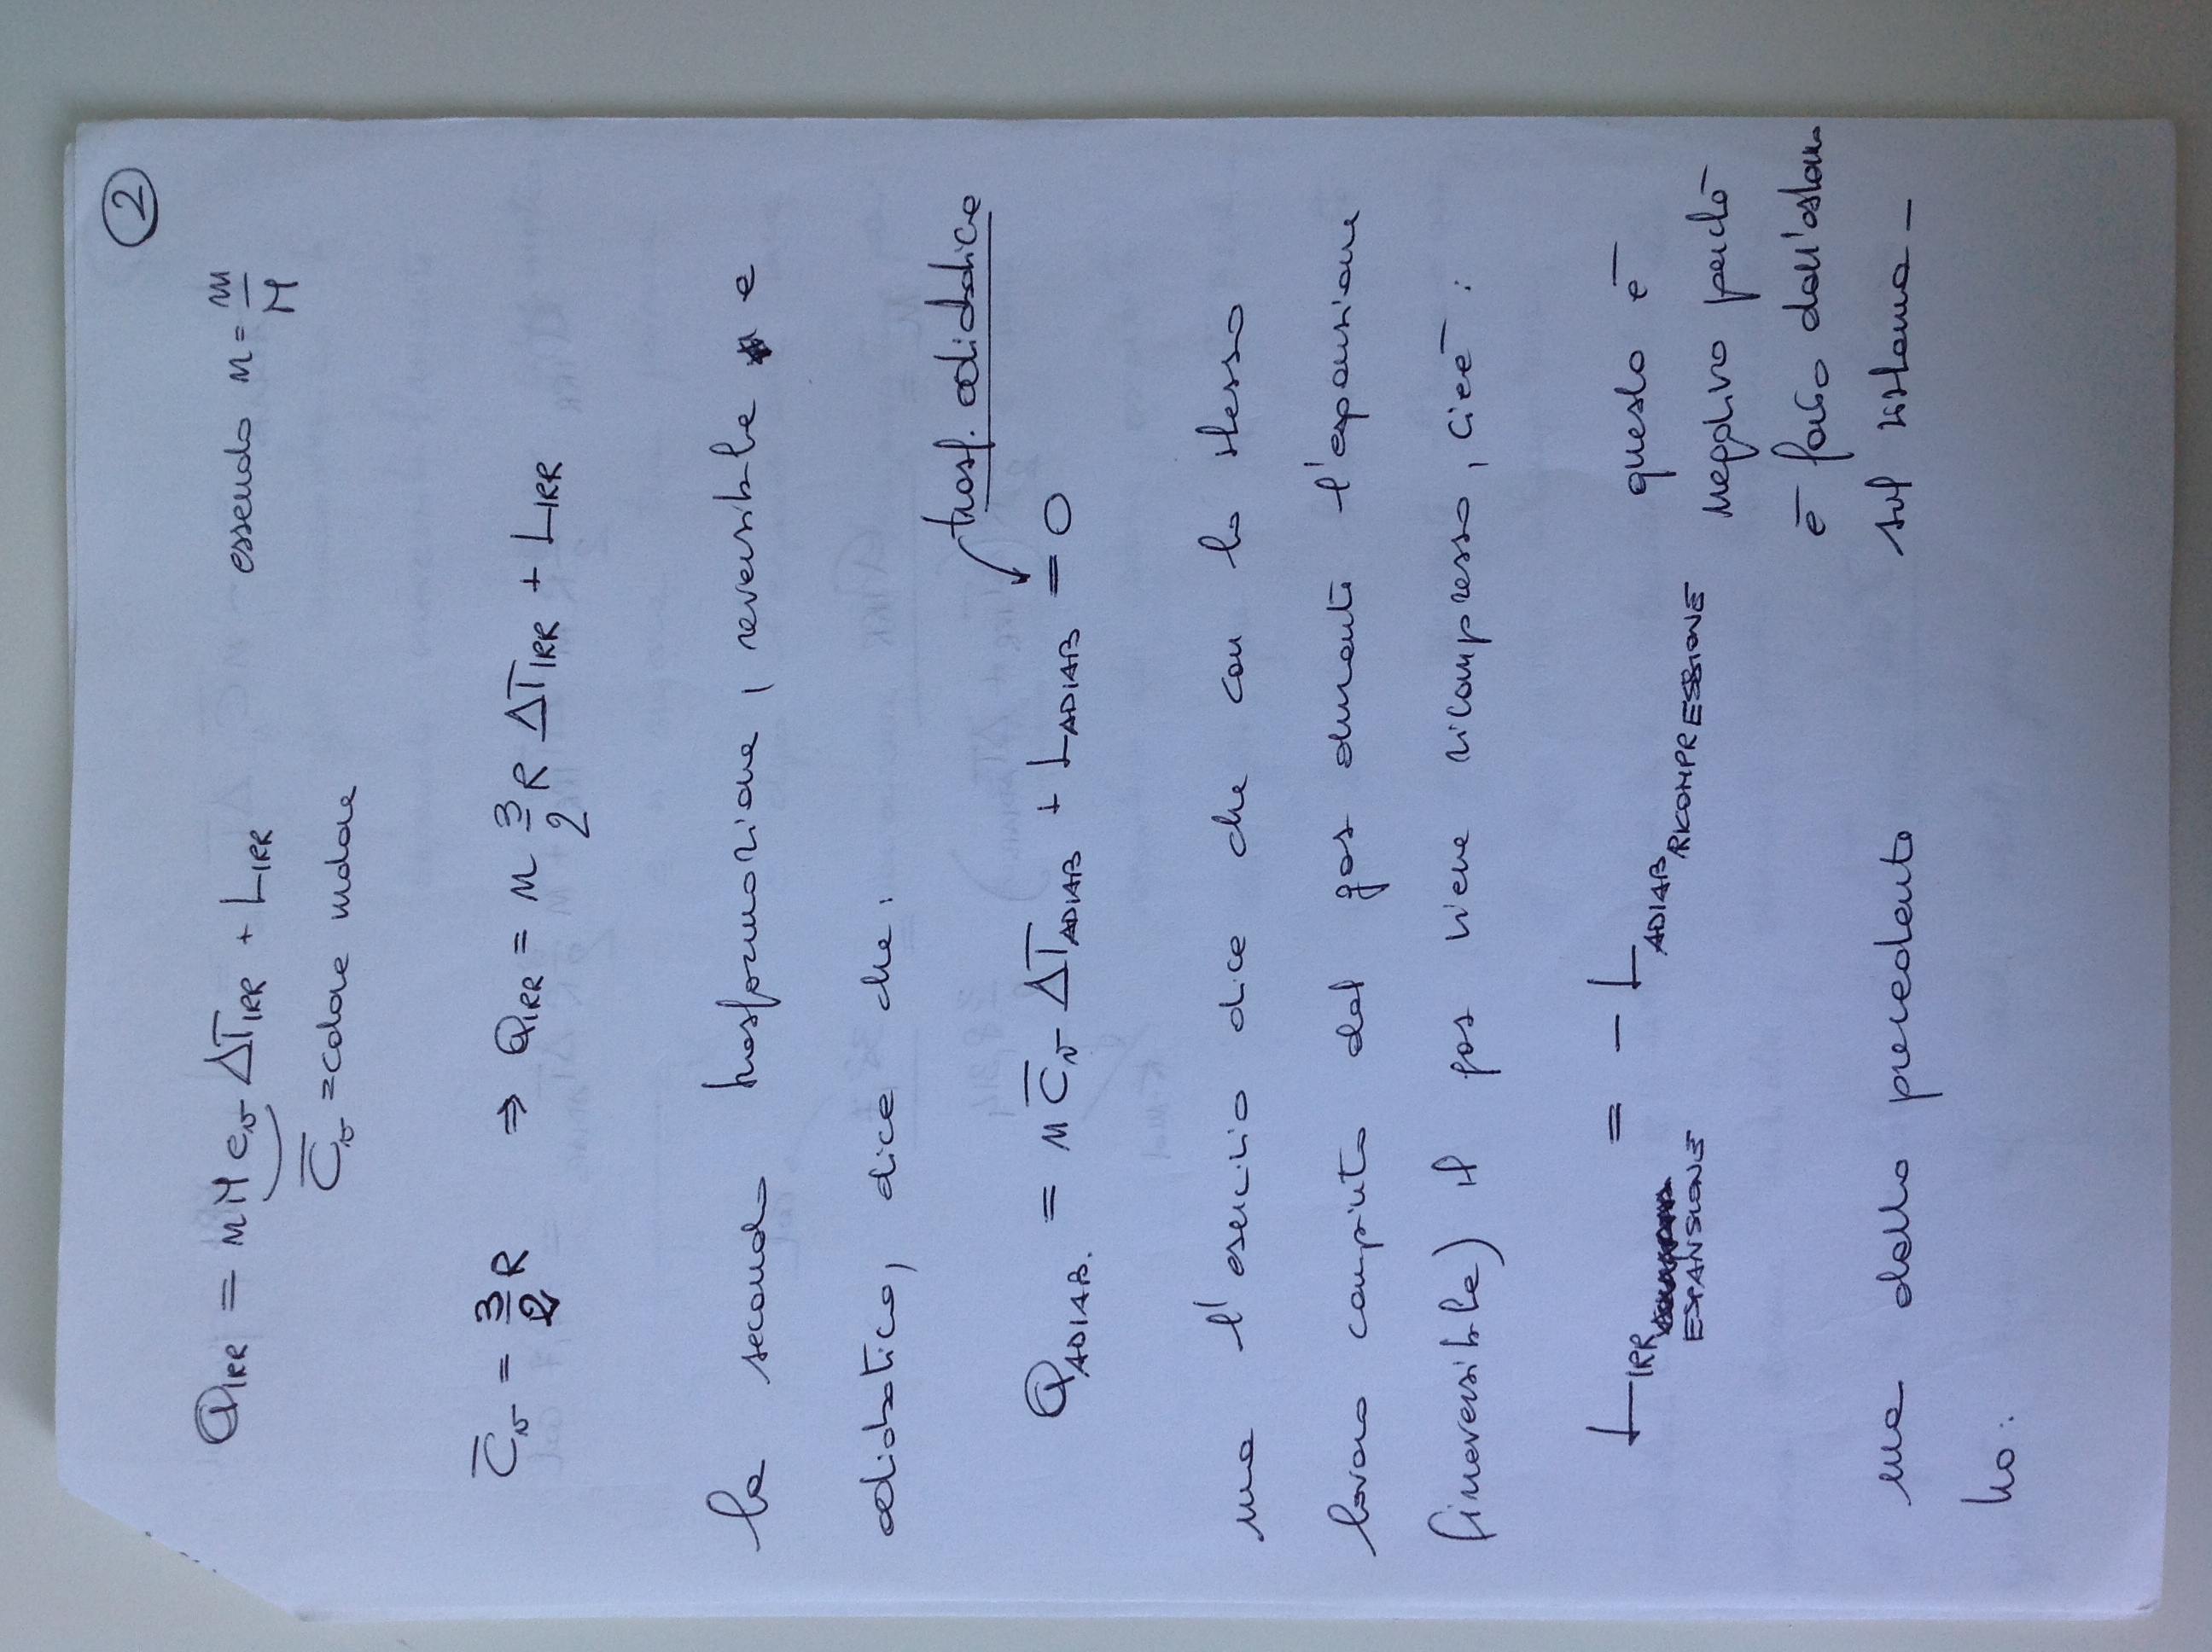 2
Q_IRR = n M c_v ΔT_IRR + L_IRR essendo n = m/M
C̄_v = calore molare
C̄_v = 3/2 R ⇒ Q_IRR = n 3/2 R ΔT_IRR + L_IRR
la seconda trasformazione, reversibile e
adiabatica, dice che:
trasf. adiabatica
Q_ADIAB. = n C̄_v ΔT_ADIAB + L_ADIAB = 0
ma l'esercizio dice che con lo stesso
lavoro compiuto dal gas durante l'espansione
(irreversibile) il gas viene ricompresso, cioè:
L_IRR ESPANSIONE = - L_ADIAB RICOMPRESSIONE
questo è
negativo perché
è fatto dall'esterno
sul sistema -
ma dalla precedente
ho: